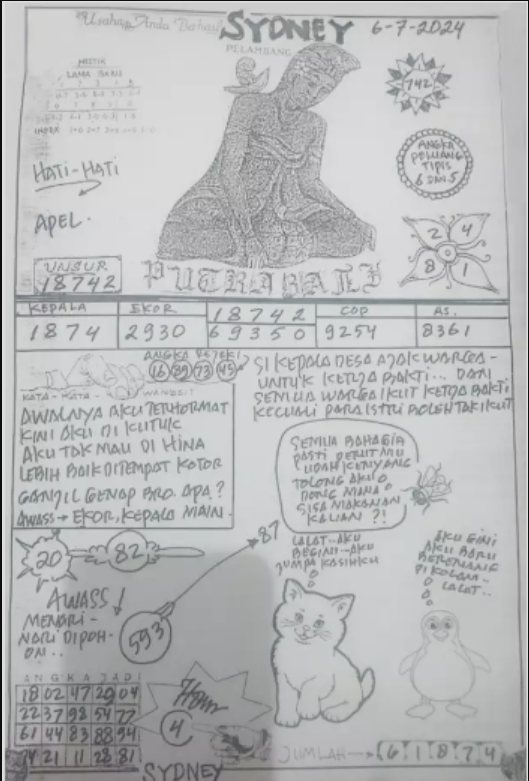 "Usaha Anda Berhasil
SYDNEY
6-7-2024
PELAMBANG
MISTIK
LAMA BARU
INDEX
742
HATI-HATI
ANGKA
PELUANG
TIPIS
6 DAN 5
APEL.
2 4
8 1
UNSUR
18742
PUTRABALI
KEPALA EKOR 18742 COP AS.
1874 2930 69350 9254 8361
ANGKA REJEKI
16 89 73 45
KATA - KATA - WANGSIT
AWALNYA AKU TERHORMAT
KINI AKU DI KUTUK
AKU TAK MAU DI HINA
LEBIH BAIK DITEMPAT KOTOR
GANJIL GENAP BRO. APA?
AWASS → EKOR, KEPALA MAIN.
SI KEPALA DESA AJAK WARGA -
UNTUK KERJA BAKTI... DAN
SEMUA WARGA IKUT KERJA BAKTI
KECUALI PARA ISTRI BOLEH TAK IKUT
SEMUA BAHAGIA
PASTI PERUTMU
UDAH KENYANG
TOLONG AKU
DONG MANA
SISA MAKANAN
KALIAN ?!
20
82
87
LALAT.. AKU
BEGINI.. AKU
JUMPA KASIHKU
AKU GINI
AKU BARU
BERENANG
DI KOLAM..
LALAT..
AWASS!
MENARI -
NARI DIPOH-
ON..
593
ANGKA JADI
18 02 47 29 04
22 37 98 54 77
61 44 83 88 94
74 21 11 28 81
4
SYDNEY
JUMLAH → 6 1 8 7 4